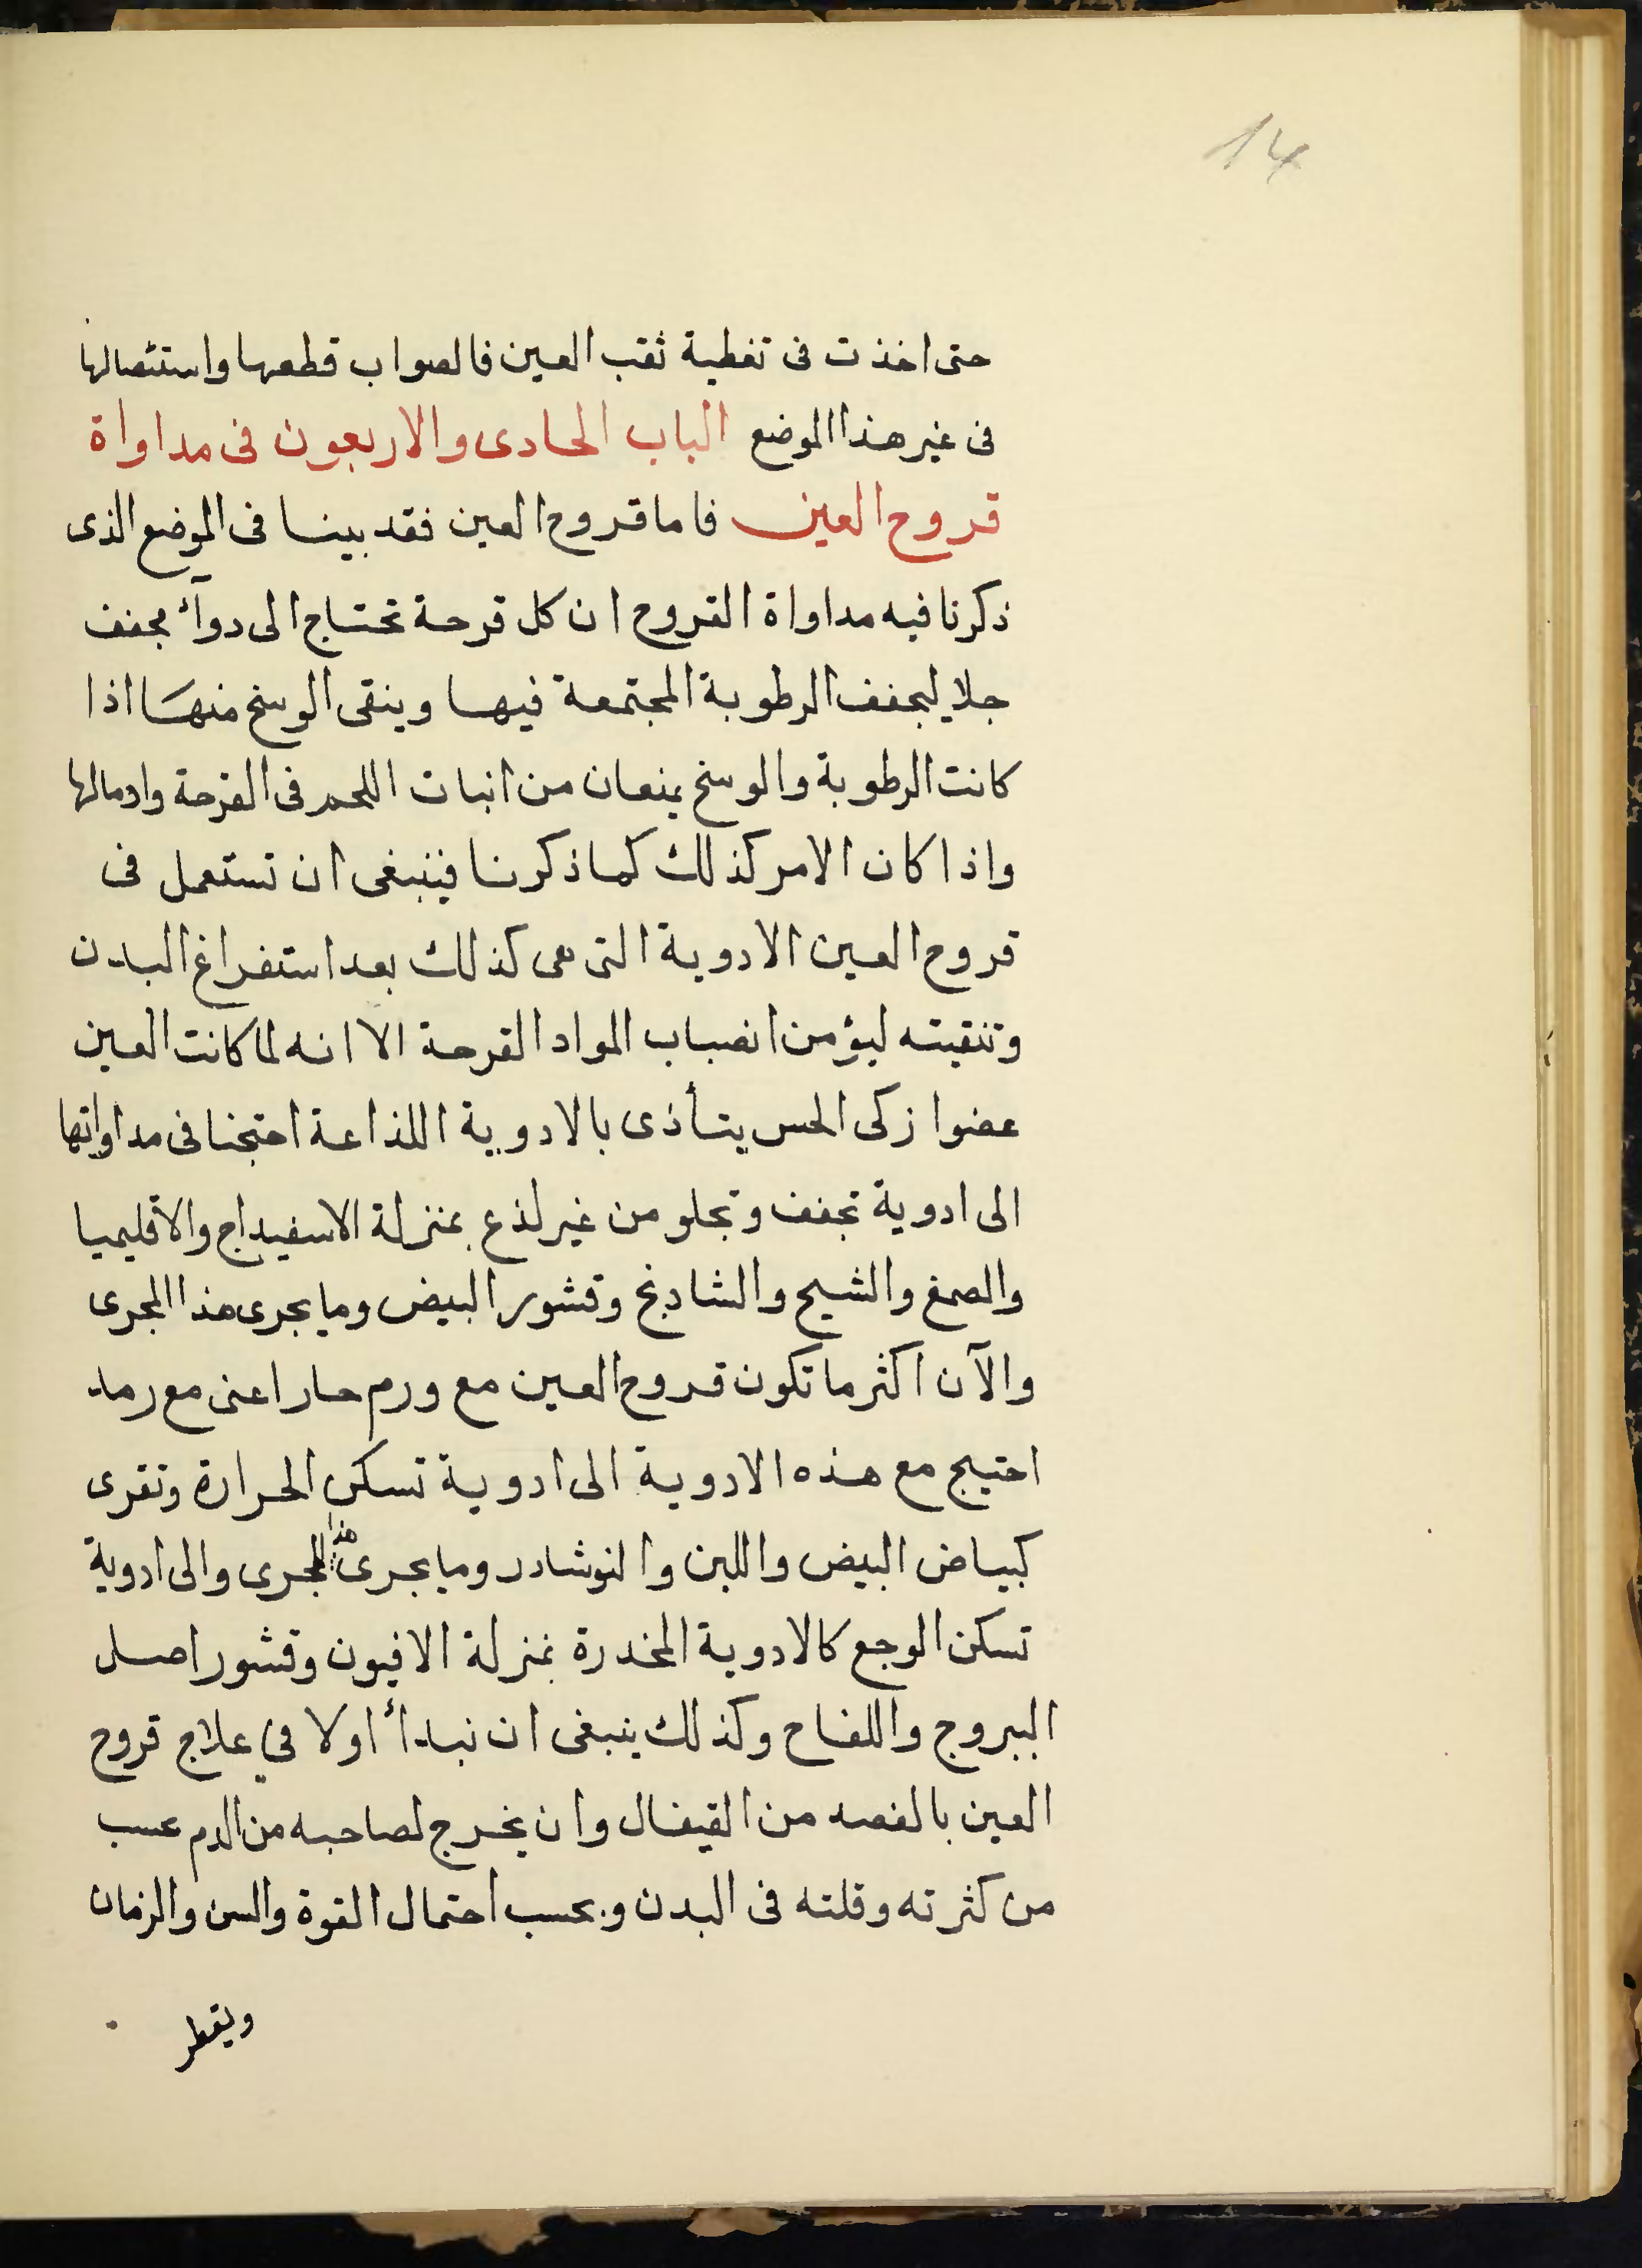 14
حتى اخذت فى تغطية ثقب العين فالصواب قطعها واستئصالها
فى غير هذا الموضع الباب الحادى والاربعون فى مداواة
قروح العين فاما قروح العين فقد بينا فى الموضع الذى
ذكرنا فيه مداواة القروح ان كل قرحة تحتاج الى دوآئ مجفف
جلا ليجفف الرطوبة المجتمعة فيها وينقى الوسخ منها اذا
كانت الرطوبة والوسخ يمنعان من انبات اللحم فى القرحة وادمالها
واذا كان الامر كذلك كما ذكرنا فينبغى ان تستعمل فى
قروح العين الادوية التى هى كذلك بعد استفراغ البدن
وتنقيته ليؤمن انصباب المواد القرحة الا انه لما كانت العين
عضوا زكى الحس يتأذى بالادوية اللذاعة احتجنا فى مداواتها
الى ادوية تجفف وتجلو من غير لذع بمنزلة الاسفيداج والاقليميا
والصمغ والشيح والشادنج وقشور البيض وما يجرى هذا المجرى
والآن اكثر ما تكون قروح العين مع ورم حار اعنى مع رمد
احتيج مع هذه الادوية الى ادوية تسكن الحرارة وتغرى
كبياض البيض واللبن والنوشادر وما يجرى هذا المجرى والى ادوية
تسكن الوجع كالادوية المخدرة بمنزلة الافيون وقشور اصل
اليبروج واللفاح وكذلك ينبغى ان نبدأ اولا في علاج قروح
العين بالفصد من القيفال وان يخرج لصاحبه من الدم بحسب
من كثرته وقلته فى البدن وبحسب احتمال القوة والسن والزمان
ويقطر